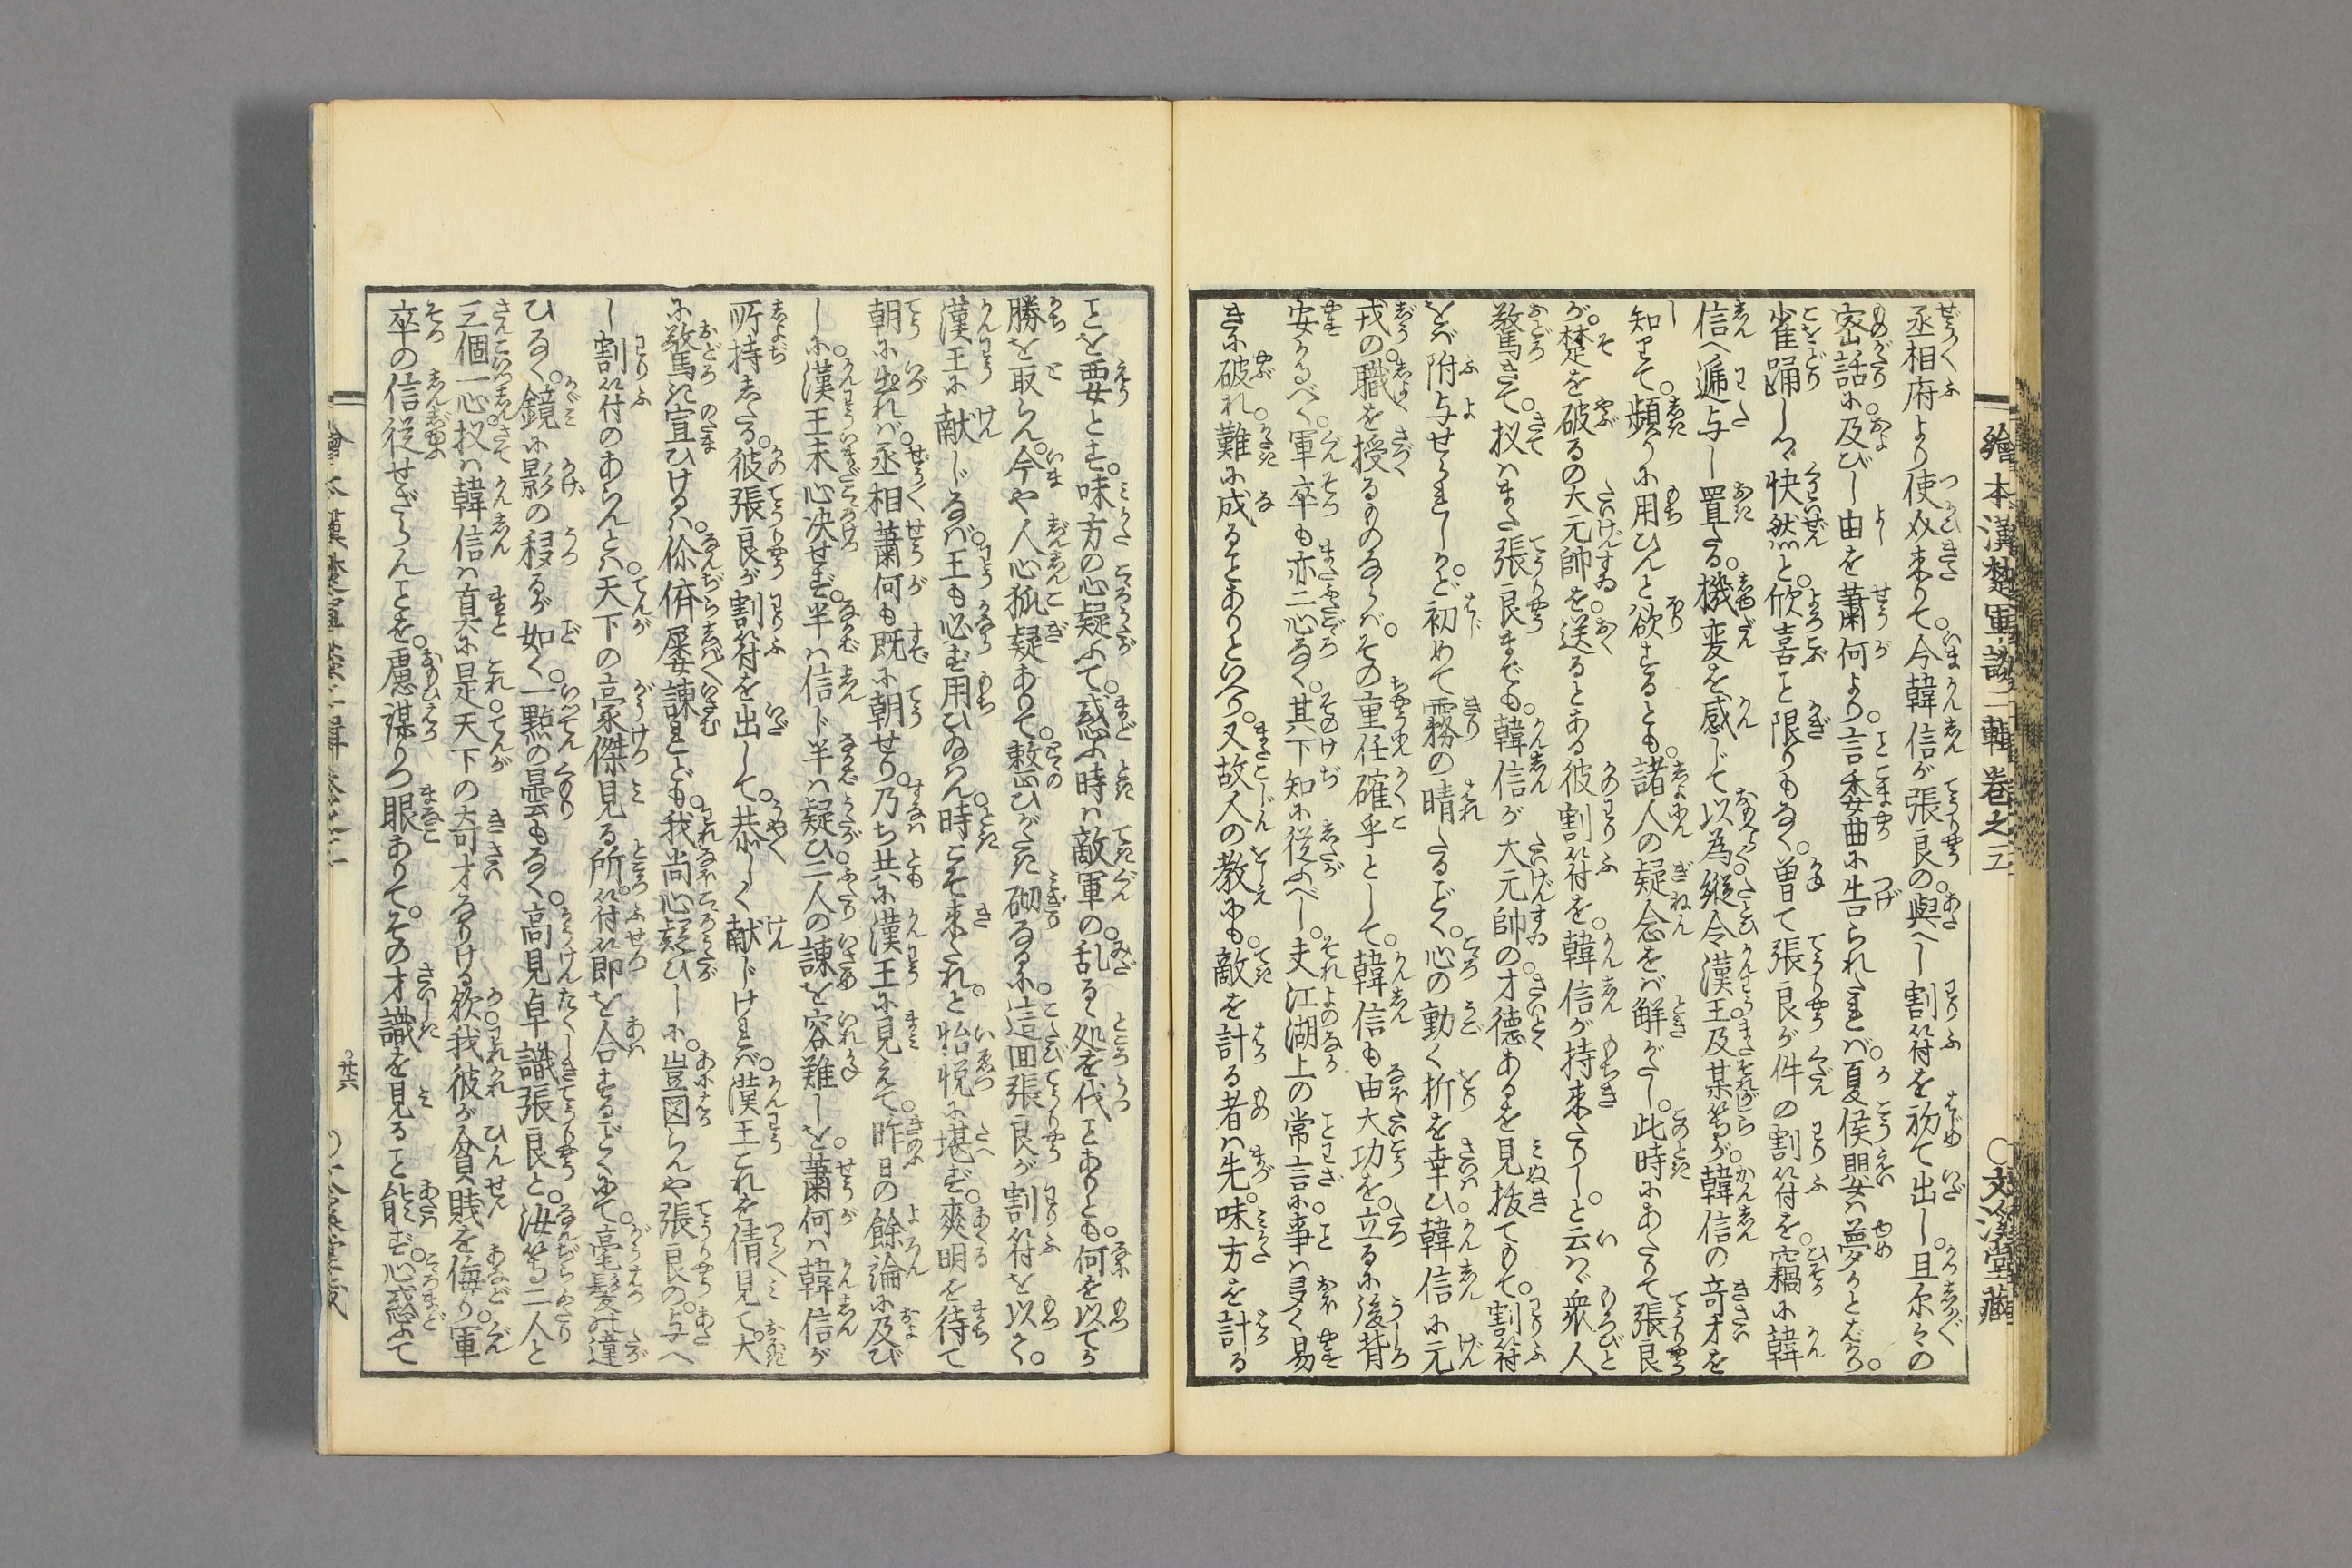 繪本漢楚軍談二輯巻之三 ○文溪堂藏
丞相府より使〆来りて。今韓信が張良の與へし割符を初て出し。且尓々の
密話に及びし由を蕭何より。言委曲に告られたれバ。夏侯嬰ハ夢かとばかり。
雀踊しつゝ快然と。欣喜こと限りもなく。曽て張良が件の割符を。窃に韓
信へ逓与し置たる。機変を感じて以為。縦令漢王及某等が。韓信の竒才を
知りて。頻りに用ひんと欲するとも。諸人の疑念をバ鮮がたし。此時にあたりて張良
が。楚を破るの大元帥を。送るとある彼割符を。韓信が持来たりし。と云ハヾ衆人
驚きて。扨ハまた張良までも。韓信が大元帥の。才徳あるを見抜てもて。割符
をバ附与せられしかと。初めて霧の晴たるごとく。心の動く折を幸ひ。韓信に元
戎の。職を授るものならバ。その重任確乎として。韓信も由大功を。立るに後背
安かるべく。軍卒も亦二心なく。其下知に従ふべし。夫江湖上の常言に。事ハ多く易
きに破れ。難に成るとありといへり。又故人の教にも。敵を計る者ハ先。味方を計る
ことを要とす。味方の心疑ふて。惑ふ時ハ敵軍の。乱るゝ処を伐ことありとも。何を以てか
勝を取らん。今や人心狐疑ありて。整ひがたき砌なるに。這回張良が割符を以かく。
漢王に献じなバ。王も必ず用ひ給ハん。時こそ来たれ。と怡悦に堪ず。爽明を待て
朝に出れバ。丞相蕭何も既に朝せり。乃ち共に漢王に見えて。昨日の餘論に及び
しに。漢王末心决せず。半ハ信ド半ハ疑ひ。二人の諌を容難しを。蕭何ハ韓信が
所持したる。彼張良が割符を出して。恭しく献じけれバ。漢王これを倩見て。大
に驚き宣ひけるハ。你〻屡諌れども。我尚心疑ひしに。豈図らんや張良の。与へ
し割符のあらんとハ。天下の豪傑見る所。符節を合するごとくにて。毫髮も違
ひなく。鏡に影の移るが如く。一點の曇もなく。高見卓識張良と。汝等二人と
三個一心。扨ハ韓信ハ真に是。天下の奇才なりける欤。我彼が貧賎を侮り。軍
卒の信従せざらんことを。慮謀りつ眼ありて。その才識を見ること能ず。心惑ふて
廿六